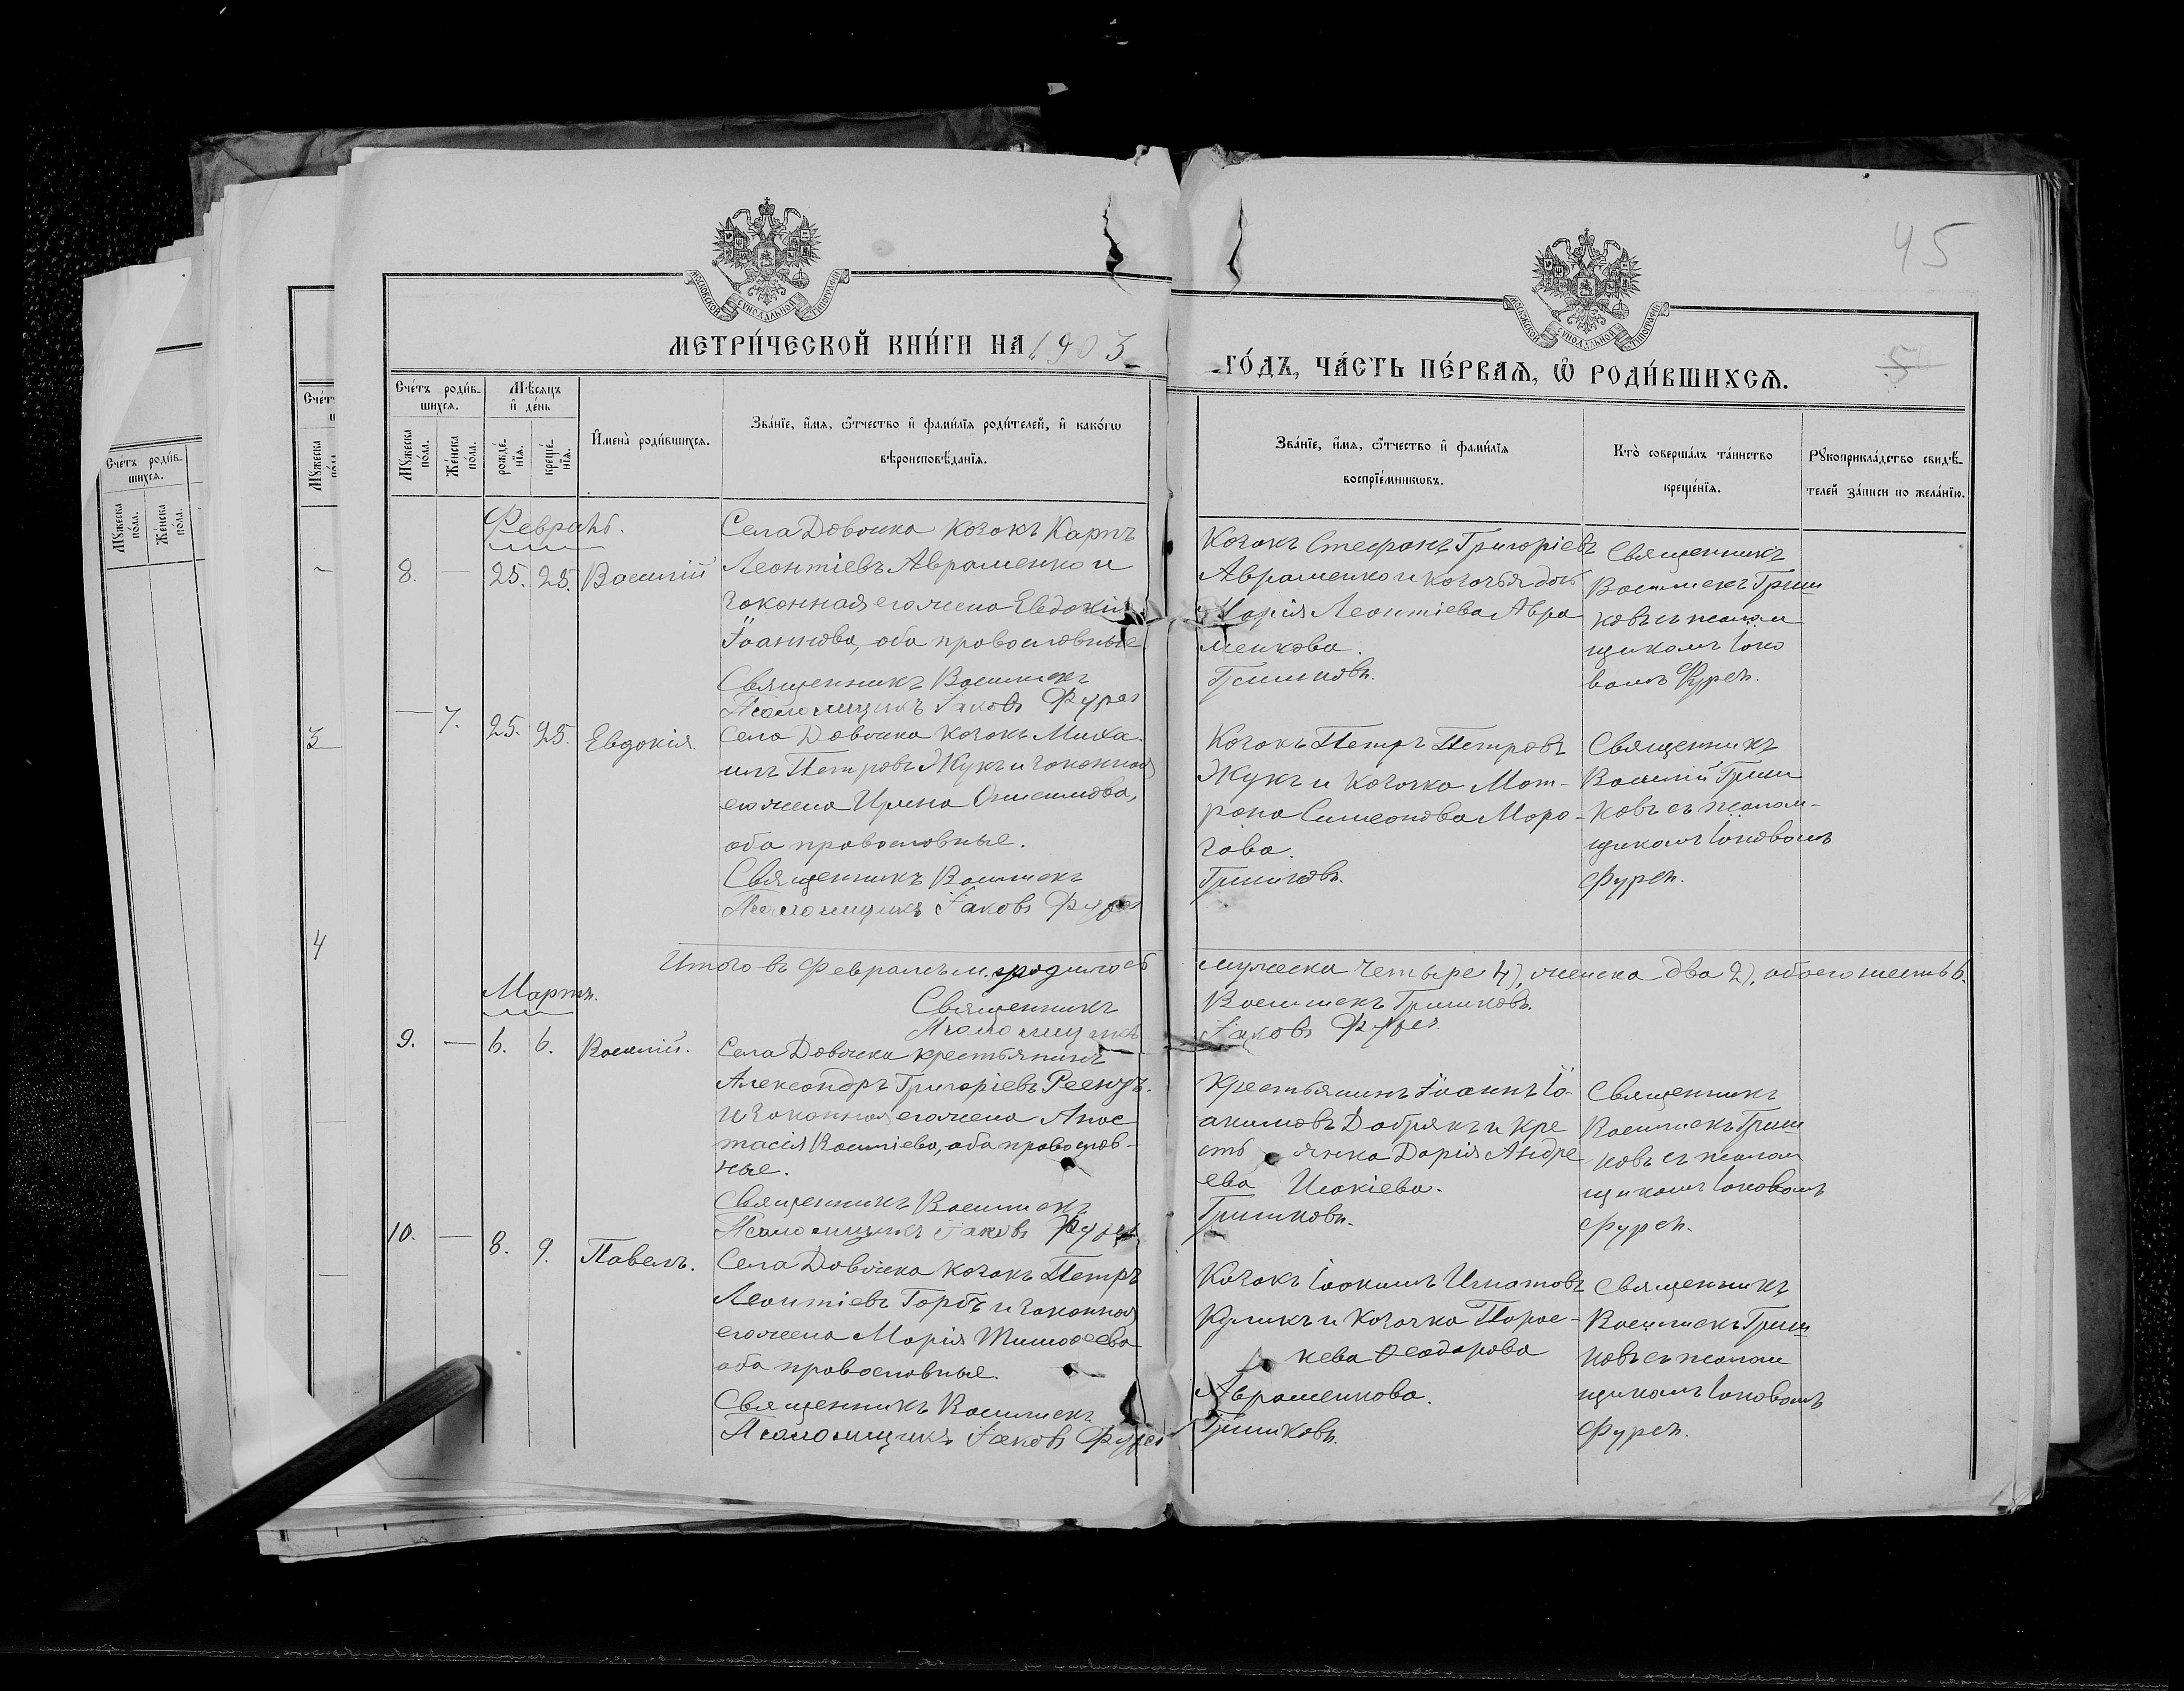 45
5
МОСКОВСКОЙ СѴНОДАЛЬНОЙ ТИПОГРАФІИ
МОСКОВСКОЙ СѴНОДАЛЬНОЙ ТИПОГРАФІИ
МЕТРИ́ЧЕСКОЙ КНИ́ГИ НА 1903
ГО́ДЪ, ЧА́СТЬ ПЕ́РВАѦ, Ѡ҆ РОДИ́ВШИХСѦ.
Сче́тъ роди́в-
шихсѧ.
Мꙋжеска по́ла.
Же́нска по́ла.
Мѣ́сѧцъ
и҆ де́нь
рожде́-
нїѧ.
креще́-
нїѧ.
И҆мена̀ роди́вшихсѧ.
Зва́нїе, и҆́мѧ, ѻ҆́тчество и҆ фами́лїѧ роди́телей, и҆ како́гѡ
вѣроисповѣ́данїѧ.
Зва́нїе, и҆́мѧ, ѻ҆́тчество и҆ фами́лїѧ
воспрїе́мникѡвъ.
Кто̀ соверша́лъ та́инство
креще́нїѧ.
Рꙋкоприкла́дство свидѣ́-
телей за́писи по жела́нїю.
Февраль.
8. — 25. 25. Василій
Села Довжика козакъ Карпъ
Леонтіевъ Авраменко и
законная его жена Евдокія
Іоаннова, оба православные
Священникъ Василискъ
Псаломщикъ Іаковъ Фурса
Козакъ Стефанъ Григоріевъ
Авраменко и козачья дочь
Марія Леонтіева Авра
менкова.
Гришковъ.
Священникъ
Василискъ Гриш
ковъ съ псалом
щикомъ Іако
вомъ Фурсъ.
— 7. 25. 25. Евдокія.
Села Довжика козакъ Миха-
илъ Петровъ Жукъ и законная
его жена Ирина Онисимова,
оба православные.
Священникъ Василискъ
Псаломщикъ Іаковъ Фурса
Козакъ Петръ Петровъ
Жукъ и козачка Мат-
рона Симеонова Моро-
зова.
Гришковъ.
Священникъ
Василій Гриш
ковъ съ псалом-
щикомъ Іаковомъ
Фурсъ.
Итого въ Февралѣ м. родилось
мужеска четыре 4), женска два 2), обоего шесть 6.
Священникъ
Василискъ Гришковъ.
Псаломщикъ
Іаковъ Фурса
Мартъ.
9. — 6. 6. Василій.
Села Довжика крестьянинъ
Александръ Григоріевъ Реентъ.
и законная его жена Анас
тасія Василіева, оба православ-
ные.
Священникъ Василискъ
Псаломщикъ Іаковъ Фурса
Крестьянинъ Іоаннъ Іо-
акимовъ Добрякъ и кре
сть янка Дарія Андре
ева Исакіева.
Гришковъ.
Священникъ
Василискъ Гриш
ковъ съ псалом
щикомъ Іаковомъ
Фурсъ.
10. — 8. 9. Павелъ.
Села Довжика козакъ Петръ
Леонтіевъ Горбъ и законная
его жена Марія Тимоѳеева
оба православные.
Священникъ Василискъ
Псаломщикъ Іаковъ Фурса
Козакъ Іоакимъ Игнатовъ
Куликъ и козачка Парас-
кева Ѳеодорова
Авраменкова.
Гришковъ.
Священникъ
Василискъ Гриш
ковъ съ псалом
щикомъ Іаковомъ
Фурсъ.
Сче́тъ роди́в-
шихсѧ.
Мꙋжеска по́ла.
Же́нска по́ла.
3
4